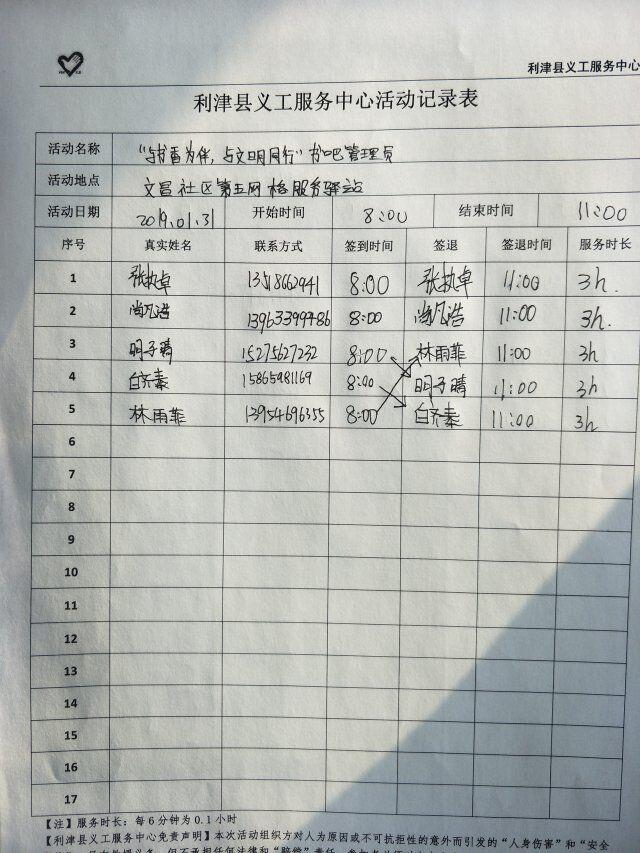 利津县义工服务中心
利津县义工服务中心活动记录表
活动名称 “与书香为伴，与文明同行”书吧管理员
活动地点 文昌社区第五网格服务驿站
活动日期 2019.01.31 开始时间 8:00 结束时间 11:00
序号 真实姓名 联系方式 签到时间 签退 签退时间 服务时长
1 张执卓 13518662941 8:00 张执卓 11:00 3h.
2 尚凡浩 13963399486 8:00 尚凡浩 11:00 3h.
3 明子晴 15275627232 8:00 林雨菲 11:00 3h
4 白齐素 15865981169 8:00 明子晴 11:00 3h
5 林雨菲 13954696355 8:00 白齐素 11:00 3h
6
7
8
9
10
11
12
13
14
15
16
17
【注】服务时长：每6分钟为0.1小时
【利津县义工服务中心免责声明】本次活动组织方对人为原因或不可抗拒性的意外而引发的“人身伤害”和“安全